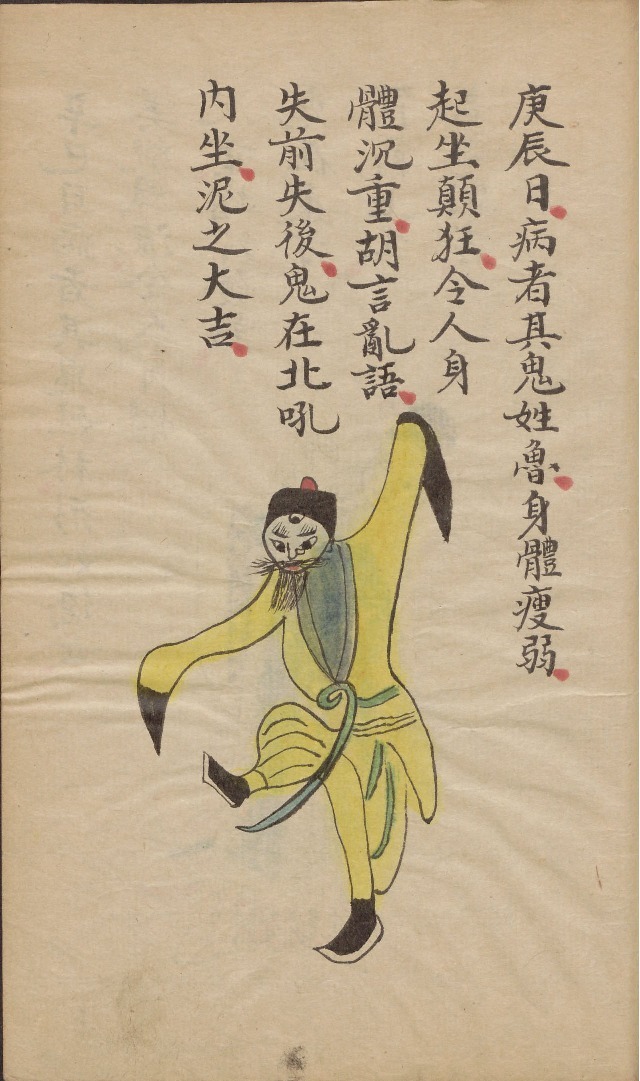 庚辰日病者其鬼姓魯身體瘦弱
起坐顛狂令人身
體沉重胡言亂語
失前失後鬼在北吼
内坐泥之大吉